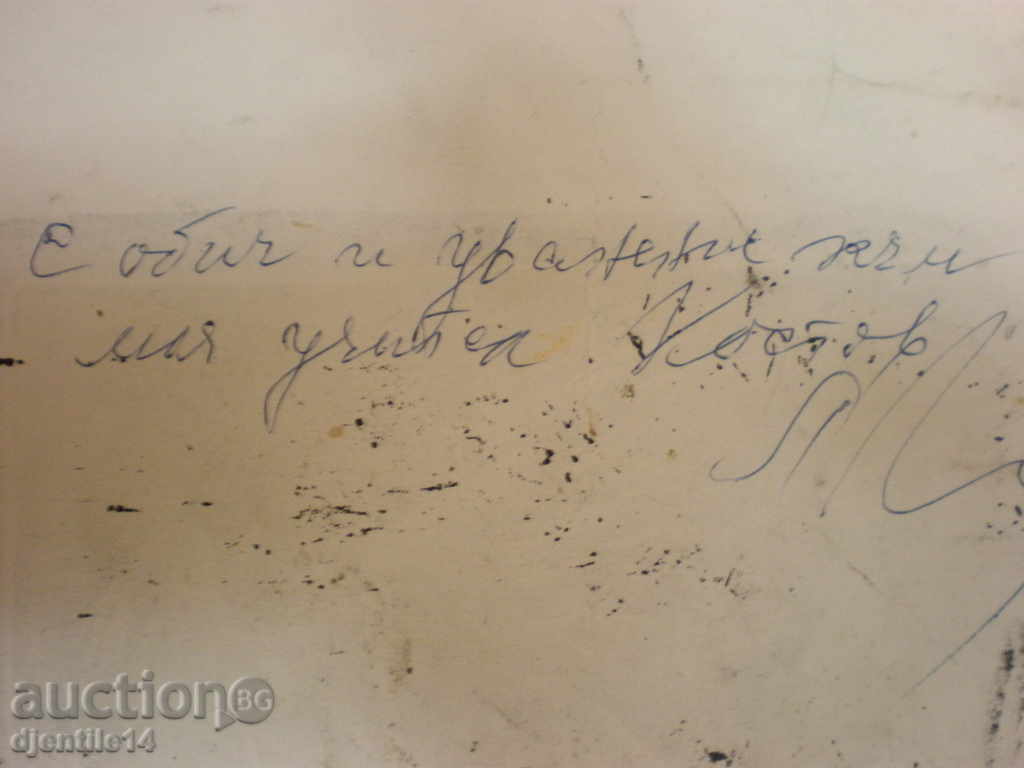 С обич и уважение към
мия учител Костов
auction BG
djentile14